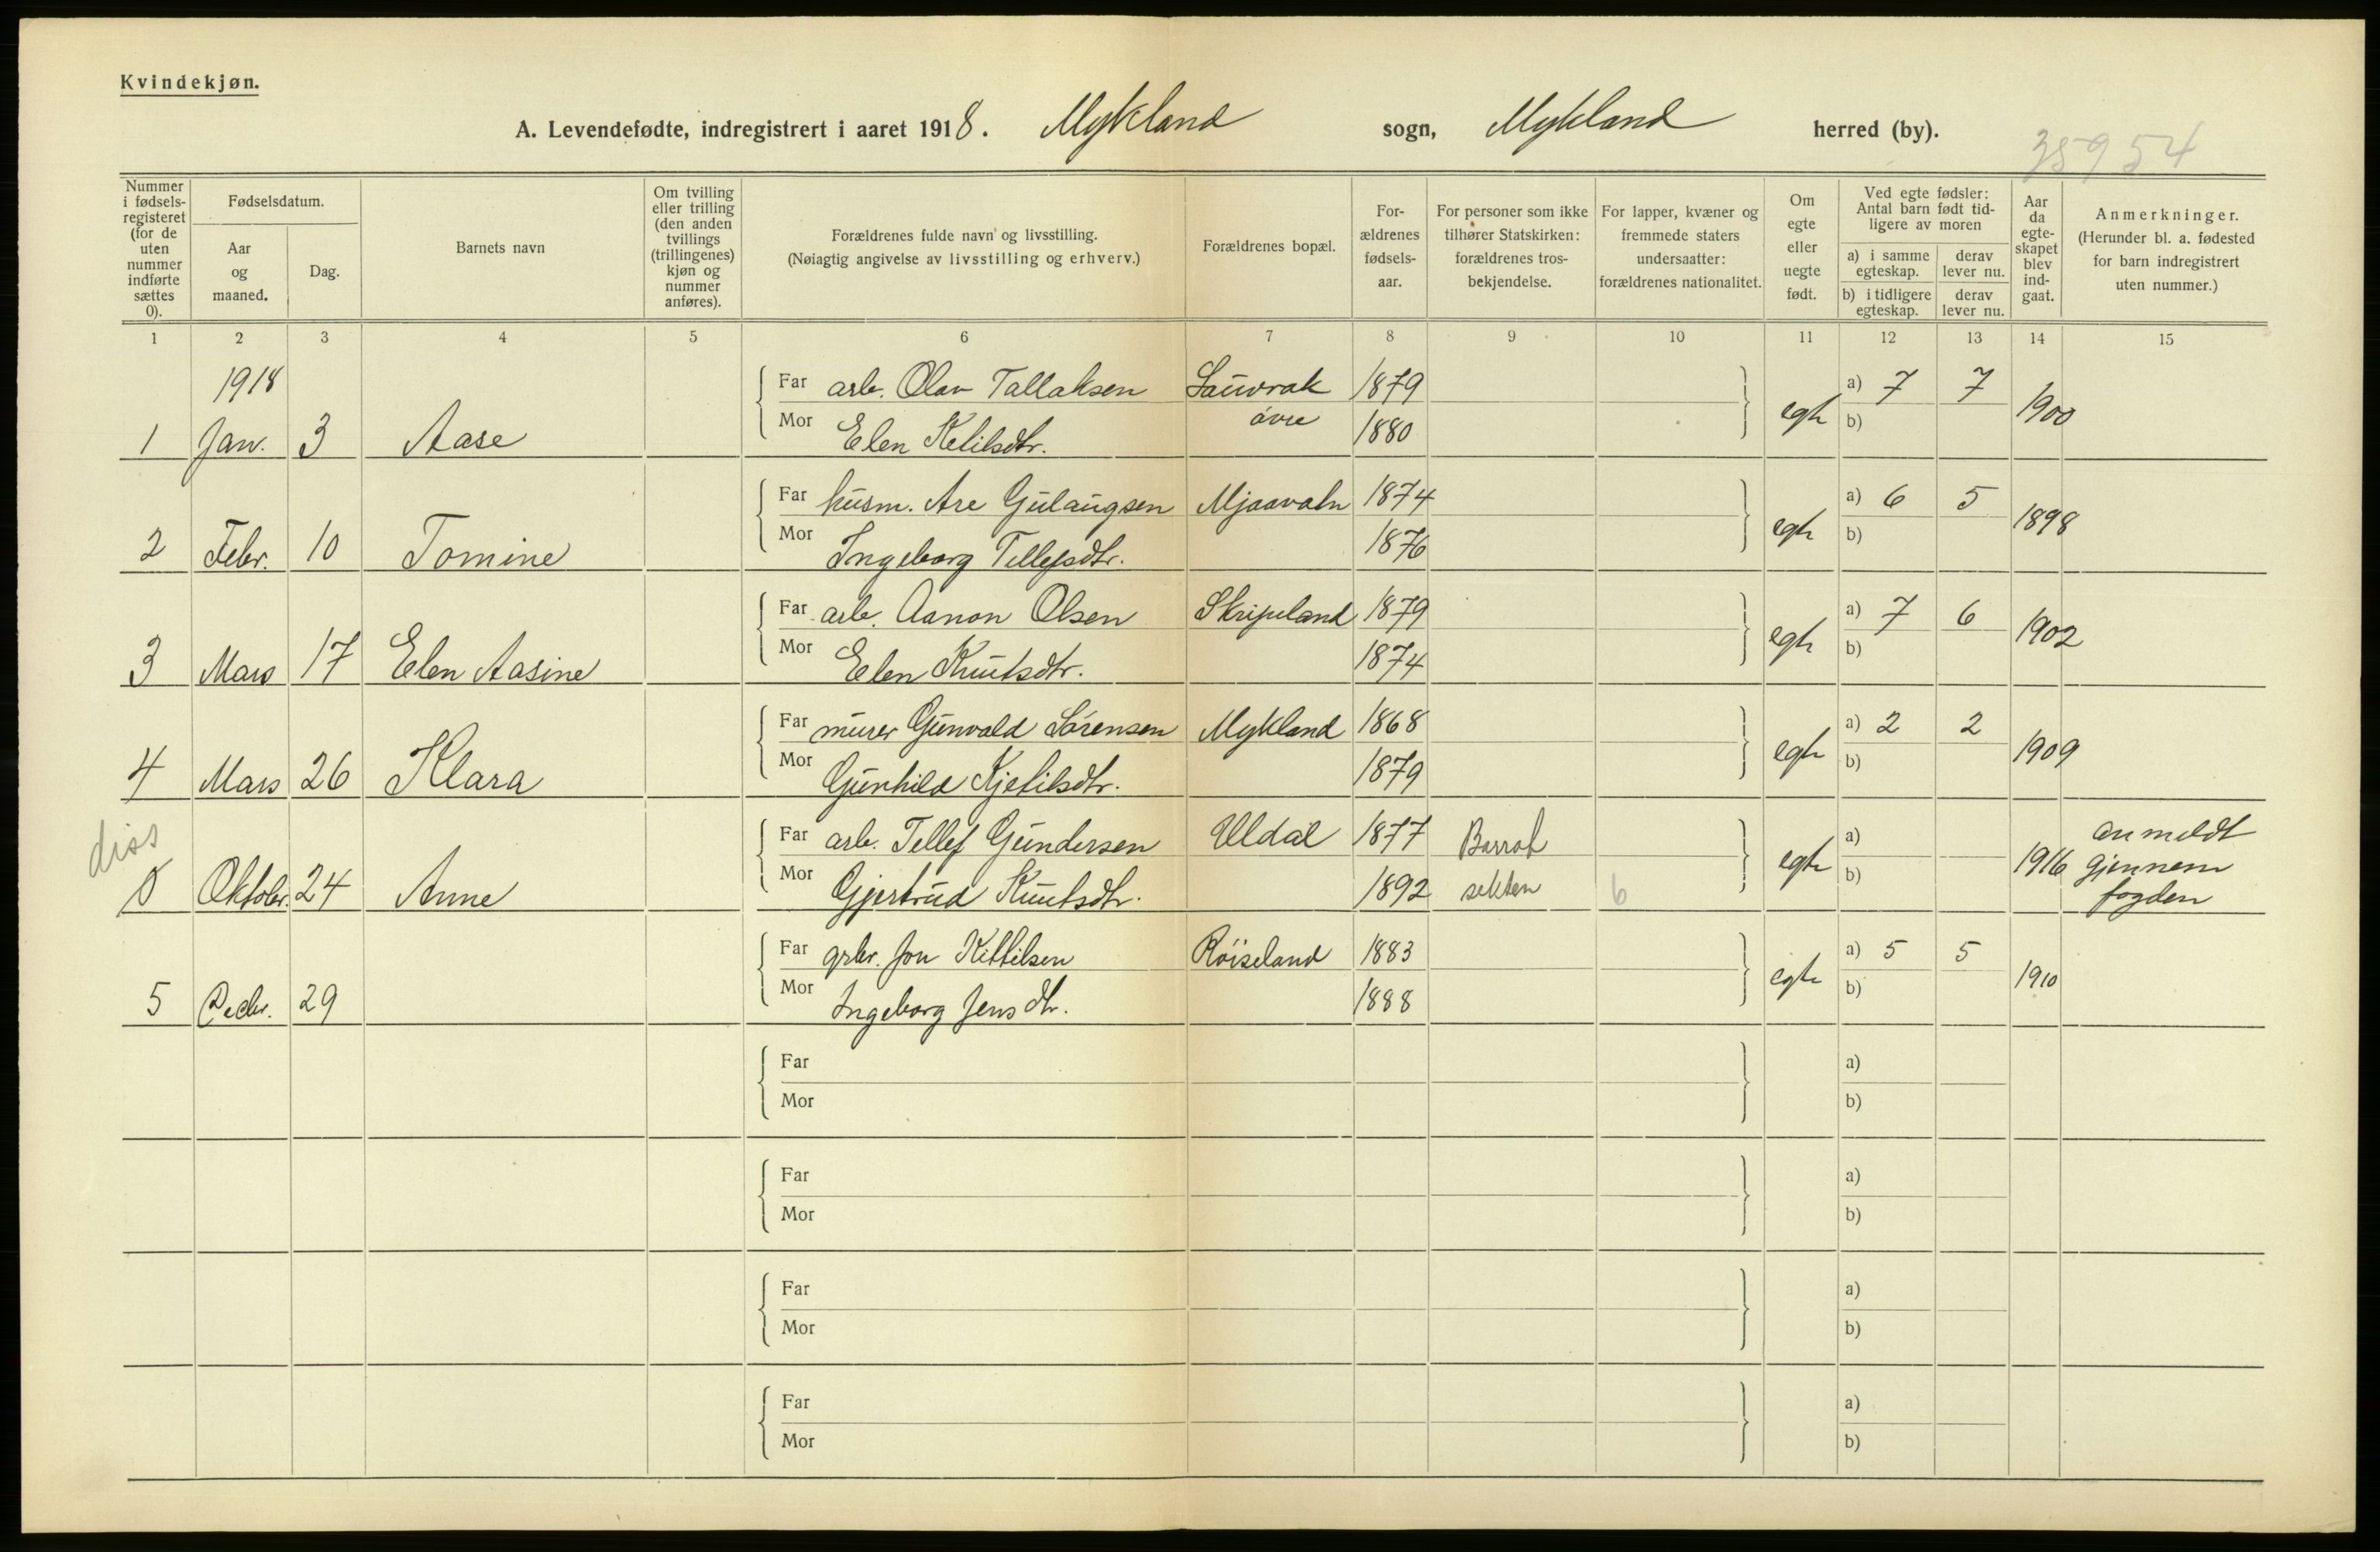 Kvindekjøn.
A. Levendefødte, indregistrert i aaret 1918. Mykland sogn, Mykland herred (by).
35954
Nummer i fødsels-registeret (for de uten nummer indførte sættes 0).
Fødselsdatum.
Aar og maaned.
Dag.
Barnets navn
Om tvilling eller trilling (den anden tvillings (trillingenes) kjøn og nummer anføres).
Forældrenes fulde navn og livsstilling.
(Nøiagtig angivelse av livsstilling og erhverv.)
Forældrenes bopæl.
For-ældrenes fødsels-aar.
For personer som ikke tilhører Statskirken: forældrenes tros-bekjendelse.
For lapper, kvæner og fremmede staters undersaatter: forældrenes nationalitet.
Om egte eller uegte født.
Ved egte fødsler: Antal barn født tid-ligere av moren
a) i samme egteskap.
derav lever nu.
b) i tidligere egteskap.
derav lever nu.
Aar da egte-skapet blev ind-gaat.
Anmerkninger.
(Herunder bl. a. fødested for barn indregistrert uten nummer.)
1 2 3 4 5 6 7 8 9 10 11 12 13 14 15
1918
Far arb. Olav Tallaksen Sauvrak 1879 a) 7 7
1 Jan. 3 Aase Mor Elen Ketilsdtr. øvre 1880 egte b) 1900
Far husm. Are Gulaugsen Mjaavatn 1874 a) 6 5
2 Febr. 10 Tomine Mor Ingeborg Tellefsdtr. 1876 egte b) 1898
Far arb. Aanon Olsen Skripeland 1879 a) 7 6
3 Mars 17 Elen Aasine Mor Elen Knutsdtr. 1874 egte b) 1902
Far murer Gunvald Sørensen Mykland 1868 a) 2 2
4 Mars 26 Klara Mor Gunhild Kjetilsdtr. 1879 egte b) 1909
diss
Far arb. Tellef Gundersen Uldal 1877 Barrat a) anmeldt
0 Oktobr. 24 Anne Mor Gjertrud Knutsdtr. 1892 sekten 6 egte b) 1916 gjennem fogden
Far grbr. Jon Kittilsen Röiseland 1883 a) 5 5
5 Decbr. 29 Mor Ingeborg Jensdtr. 1888 egte b) 1910
Far a)
Mor b)
Far a)
Mor b)
Far a)
Mor b)
Far a)
Mor b)